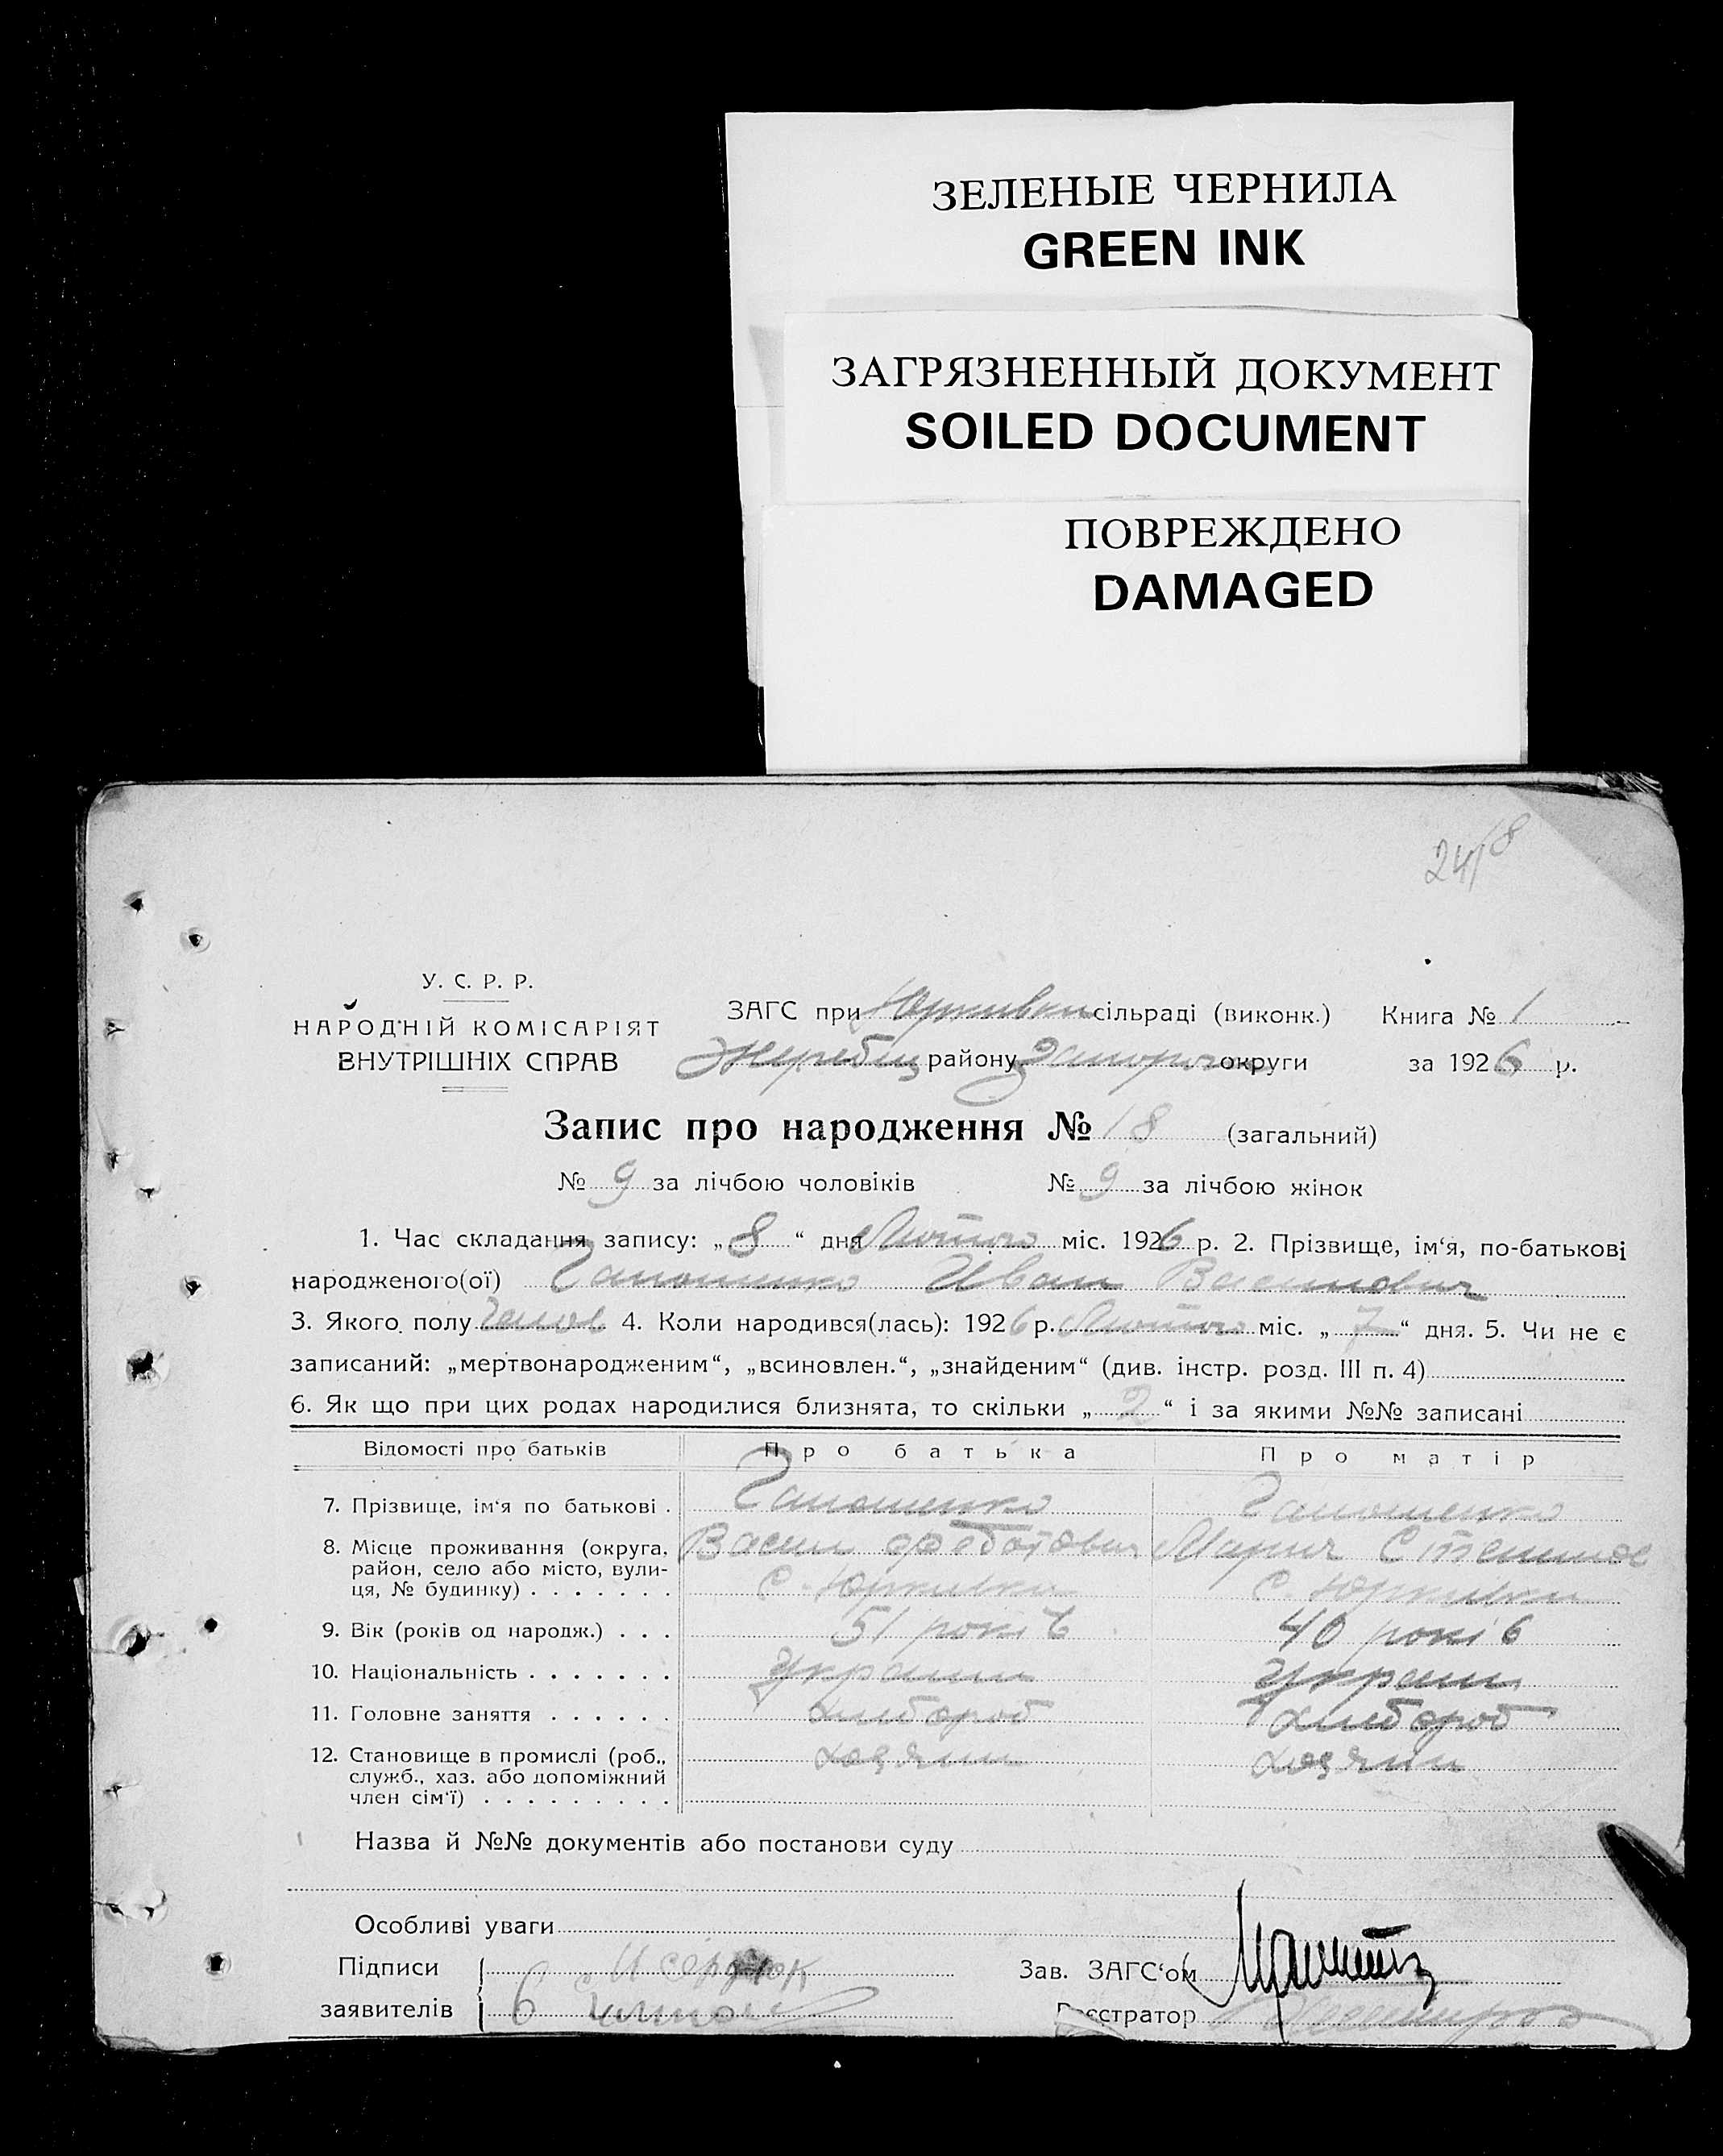 ЗЕЛЕНЫЕ ЧЕРНИЛА
GREEN INK
ЗАГРЯЗНЕННЫЙ ДОКУМЕНТ
SOILED DOCUMENT
ПОВРЕЖДЕНО
DAMAGED
24/8
У. С. Р. Р.
НАРОДНІЙ КОМІСАРІЯТ
ВНУТРІШНІХ СПРАВ
ЗАГС при Юркивки сільраді (виконк.) Книга № 1
Жеребец району Запорож округи за 1926 р.
Запис про народження № 18 (загальний)
№ 9 за лічбою чоловіків № 9 за лічбою жінок
1. Час складання запису: „ 8 “ дня Лютого міс. 1926 р. 2. Прізвище, ім‘я, по-батькові
народженого(ої) Гапошенко Иван Василович
3. Якого полу чолов 4. Коли народився(лась): 1926 р. Лютого міс. „ 7 “ дня. 5. Чи не є
записаний: „мертвонародженим“, „всиновлен.“, „знайденим“ (див. інстр. розд. III п. 4)
6. Як що при цих родах народилися близнята, то скільки „ 2 “ і за якими №№ записані
Відомості про батьків Про батька Про матір
7. Прізвище, ім‘я по батькові . Гапошенко Гапошенко
8. Місце проживання (округа, Васил Марич
район, село або місто, вули- с. Юркивки с. Юркивки
ця, № будинку) . . . . . . .
9. Вік (років од народж.) . . . 51 років 40 років
10. Національність . . . . . . . Украин Украин
11. Головне заняття . . . . . . хлибороб хлибороб
12. Становище в промислі (роб., хозяин хозяин
служб., хаз. або допоміжний
член сім‘ї) . . . . . . . . . .
Назва й №№ документів або постанови суду
Особливі уваги
Підписи И сердюк Зав. ЗАГС‘ом
заявителів Реєстратор